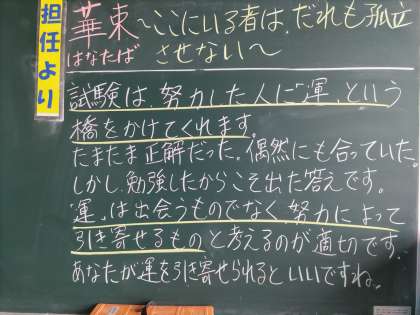 担任より
華束~ここにいる者は、だれも孤立
はなたば させない~
試験は、努力した人に「運」という
橋をかけてくれます。
たまたま正解だった。偶然にも合っていた。
しかし、勉強したからこそ出た答えです。
「運」は出会うものでなく努力によって
引き寄せるものと考えるのが適切です。
あなたが運を引き寄せられるといいですね。